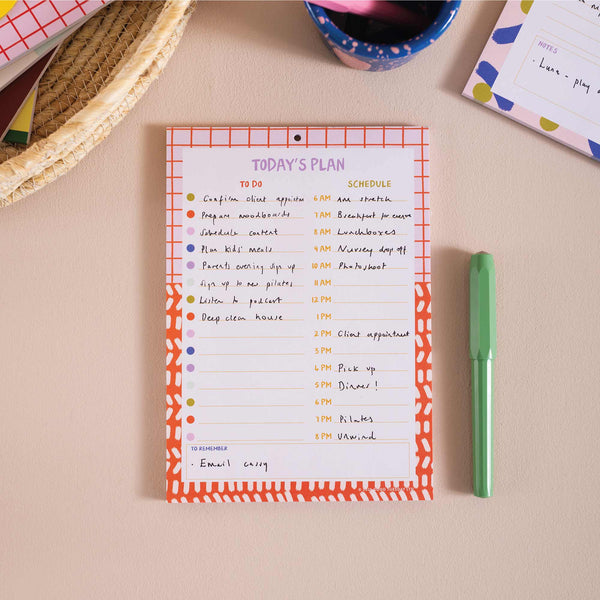 TODAY'S PLAN
TO DO
SCHEDULE
Confirm client appointm
6 AM am stretch
Prepare moodboards
7 AM Breakfast for everyone
Schedule content
8 AM Lunchboxes
Plan kids' meals
9 AM Nursery drop off
Parents evening sign up
10 AM Photoshoot
Sign up to new pilates
11 AM
Listen to podcast
12 PM
Deep clean house
1 PM
2 PM Client appointment
3 PM
4 PM Pick up
5 PM Dinner!
6 PM
7 PM Pilates
8 PM Unwind
TO REMEMBER
· Email cassy
NOTES
· Luna - play